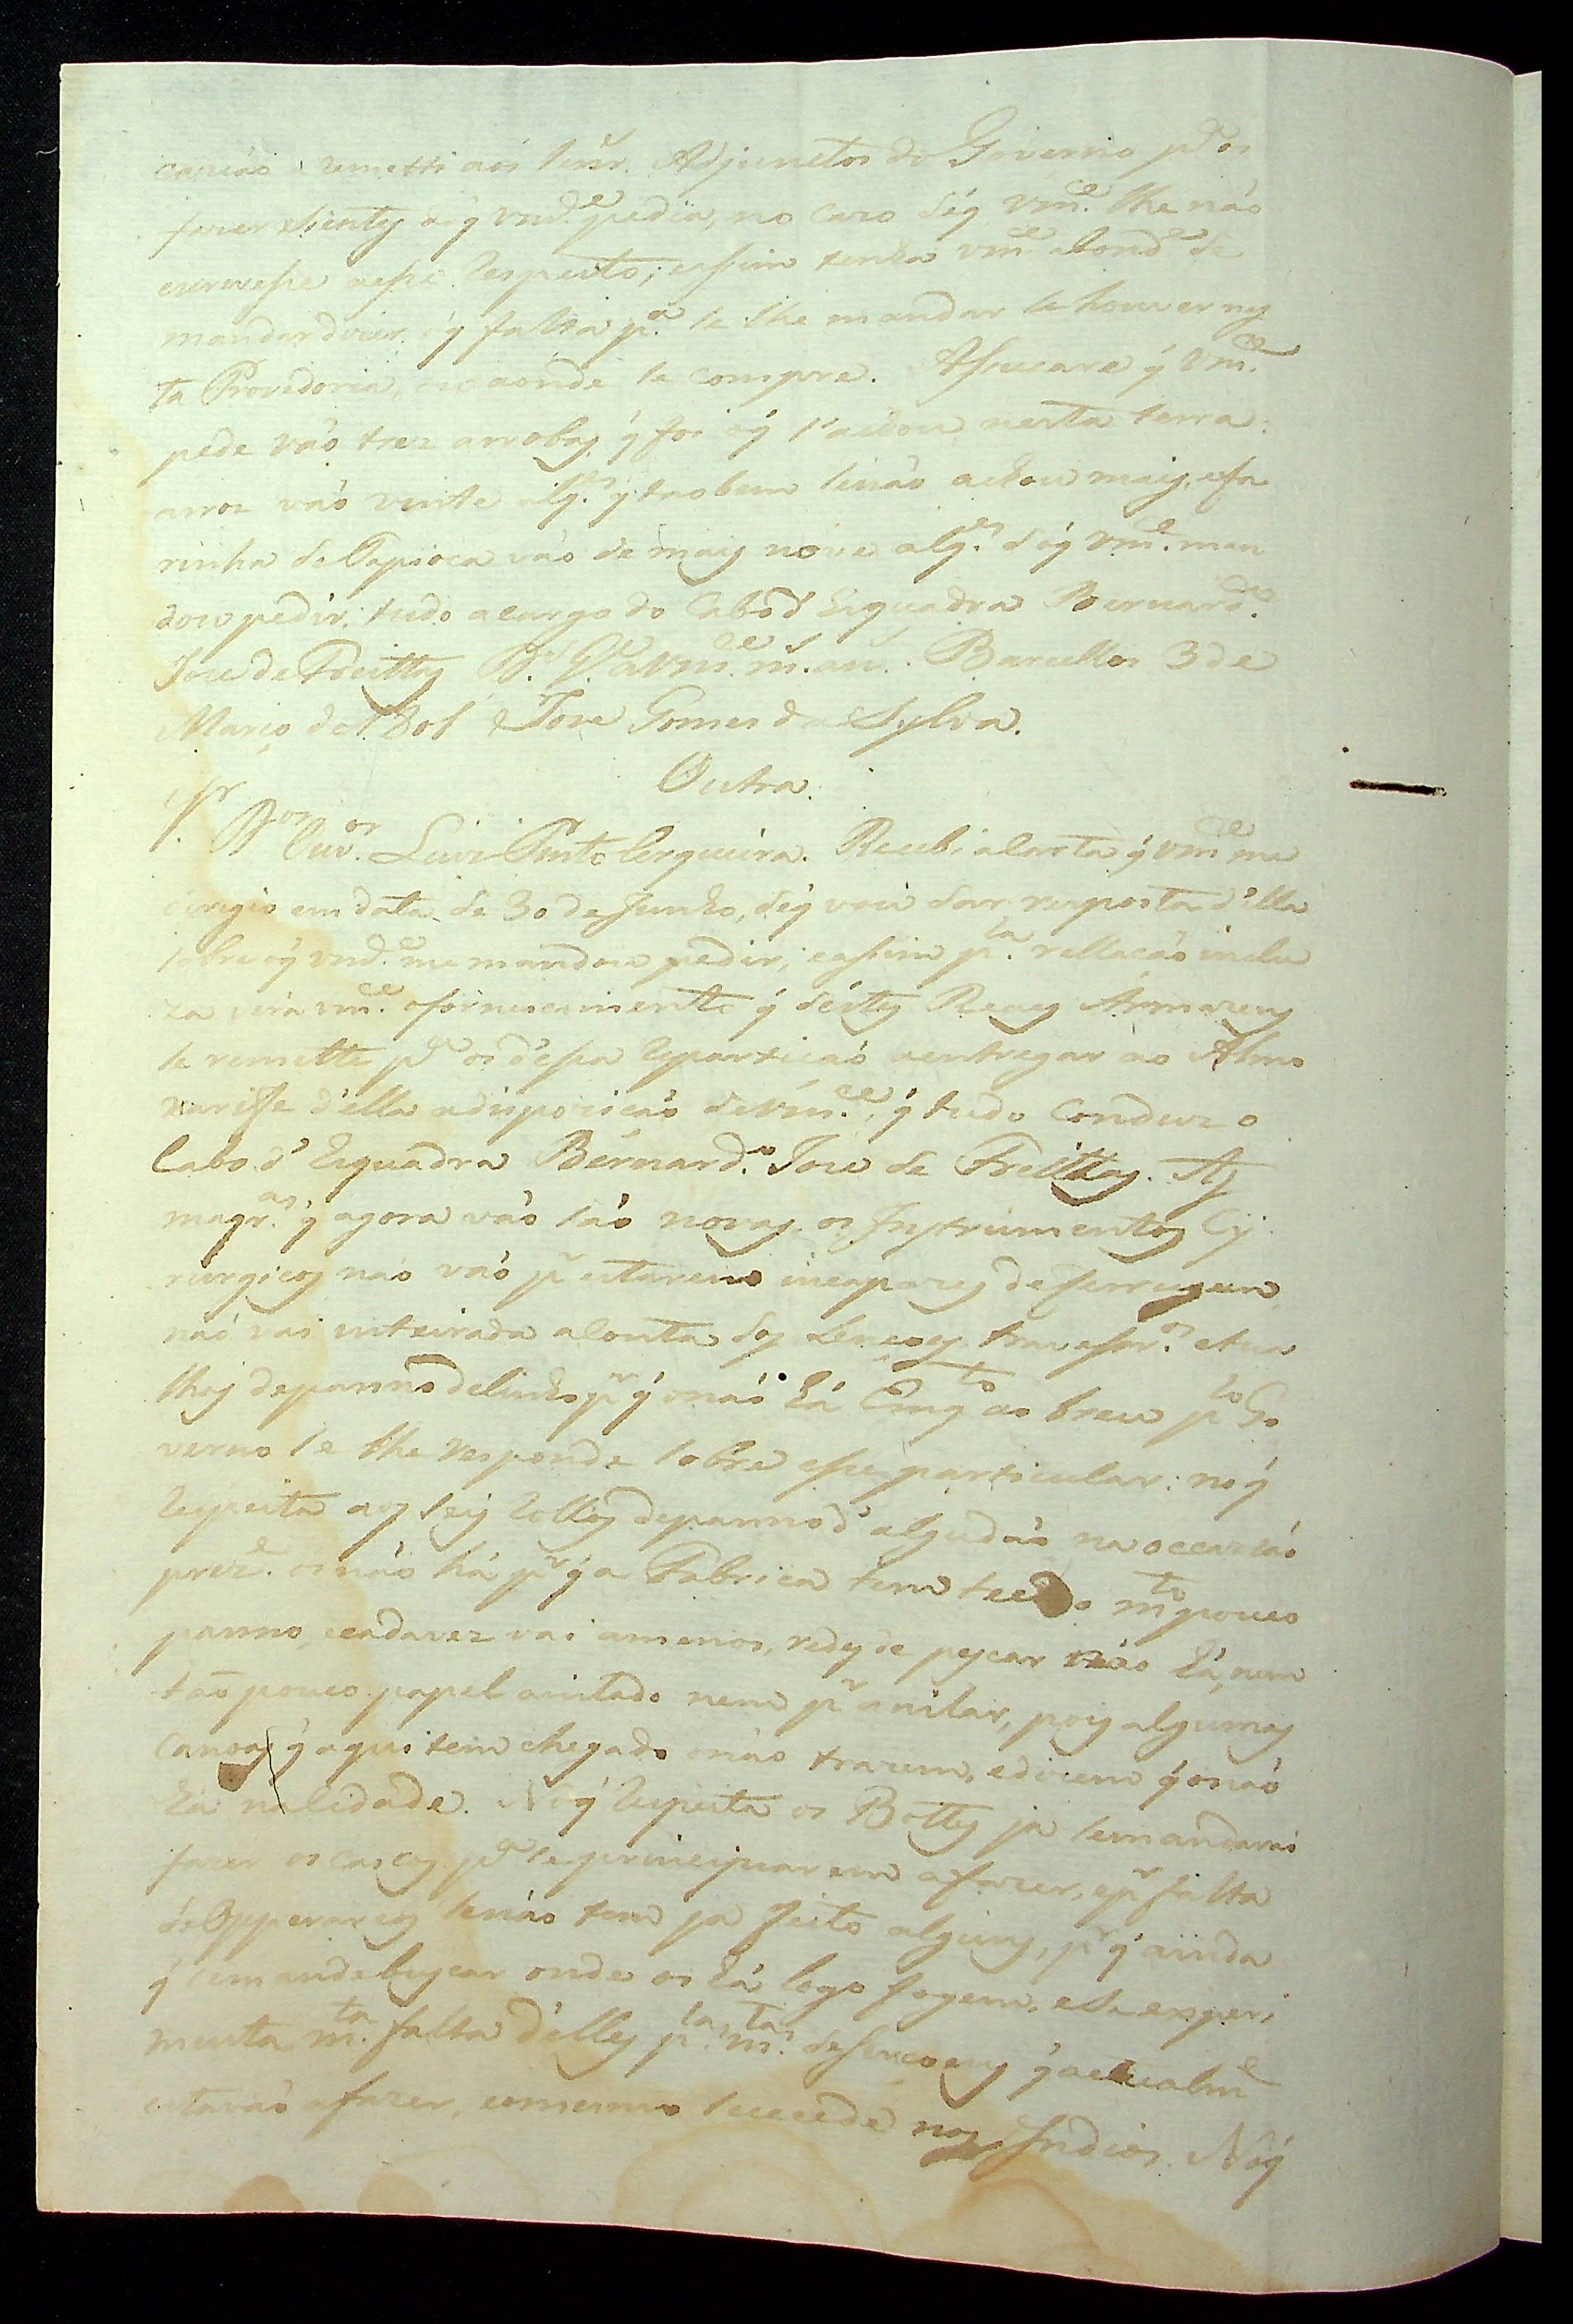 cazião remetti aos Senr. Adjunctos do Governo pª os
fazer scientes do q̃ Vmce pedia, no cazo de q̃ Vmce lhe não
escrevese a esse respeito; e assim tenha Vmce a bondᵉ de
mandar dizer o q̃ falta pª se lhe mandar se houver nes
ta Provedoria, ou aonde se compre. Assucare q̃ Vmce
pede vão trez arrobas q̃ foi o q̃ s'achou nesta terra:
arroz vão vinte alqes q̃ taobem senão achou mais, e fa
rinha de Tapioca vão de mais nove alqes do q̃ Vmce man
dou pedir; tudo a cargo do Cabo d'Esquadra Bernardo
Joze de Freittas D.ˢ G.ᵉ a Vmce m. an. Barcellos 3 de
Março de 180 Joze Gomes da Sylva.
Outra.
Sr Dor Ouvor Luiz Pinto Cerqueira. Recebi a Carta q̃ Vmce me
dirigio em data de 30 de Junho, de q̃ vou dar resposta d'ella
sobre o q̃ Vmce me mandou pedir; e assim pla rellação inclu
za verá Vmce o fornescimento q̃ d'estes Reaes Armazens
se remette pª os d'essa repartição a entregar ao Almo
xariffe d'ella a dispozicão de Vmce; q̃ tudo conduz o
Cabo d'Esquadra Bernardo Joze de Freittas. As
magras q̃ agora vão são novas os Instrumentos Cy
rurgicos não vão pr estarem incapazes de ferrugem,
não vai inteirada a Conta dos Lençoes, travessros e toa
lhas de panno de linho pr q̃ o não há Emqto ao breu plo Go
verno se lhe responde sobre esse particular: no q̃
respeita aos seis rollos de panno d'algudão na occazião
prezᵉ. os não há pr q̃ a Fabrica tem tecido mto pouco
panno, e cada vez vai a menos, redes de pescar não há, nem
tão pouco papel anilado nem pª anilar, pois algumas
Canoas q̃ aqui tem chegado o não trazem, e dizem q̃ o não
há na Cidade. No q̃ respeita os Bottes ja se mandarão
fazer os Cascos pª se principiarem a fazer, e pr falta
de Opperarios senão tem ja feito alguns, pr q̃ ainda
q̃ se mande buscar onde os há logo fogem, e se experi
menta mta falta d'elles plas mtas deserçoens q̃ actualmᵉ
estavão a fazer, e o mesmo succede nos Indios. No q̃